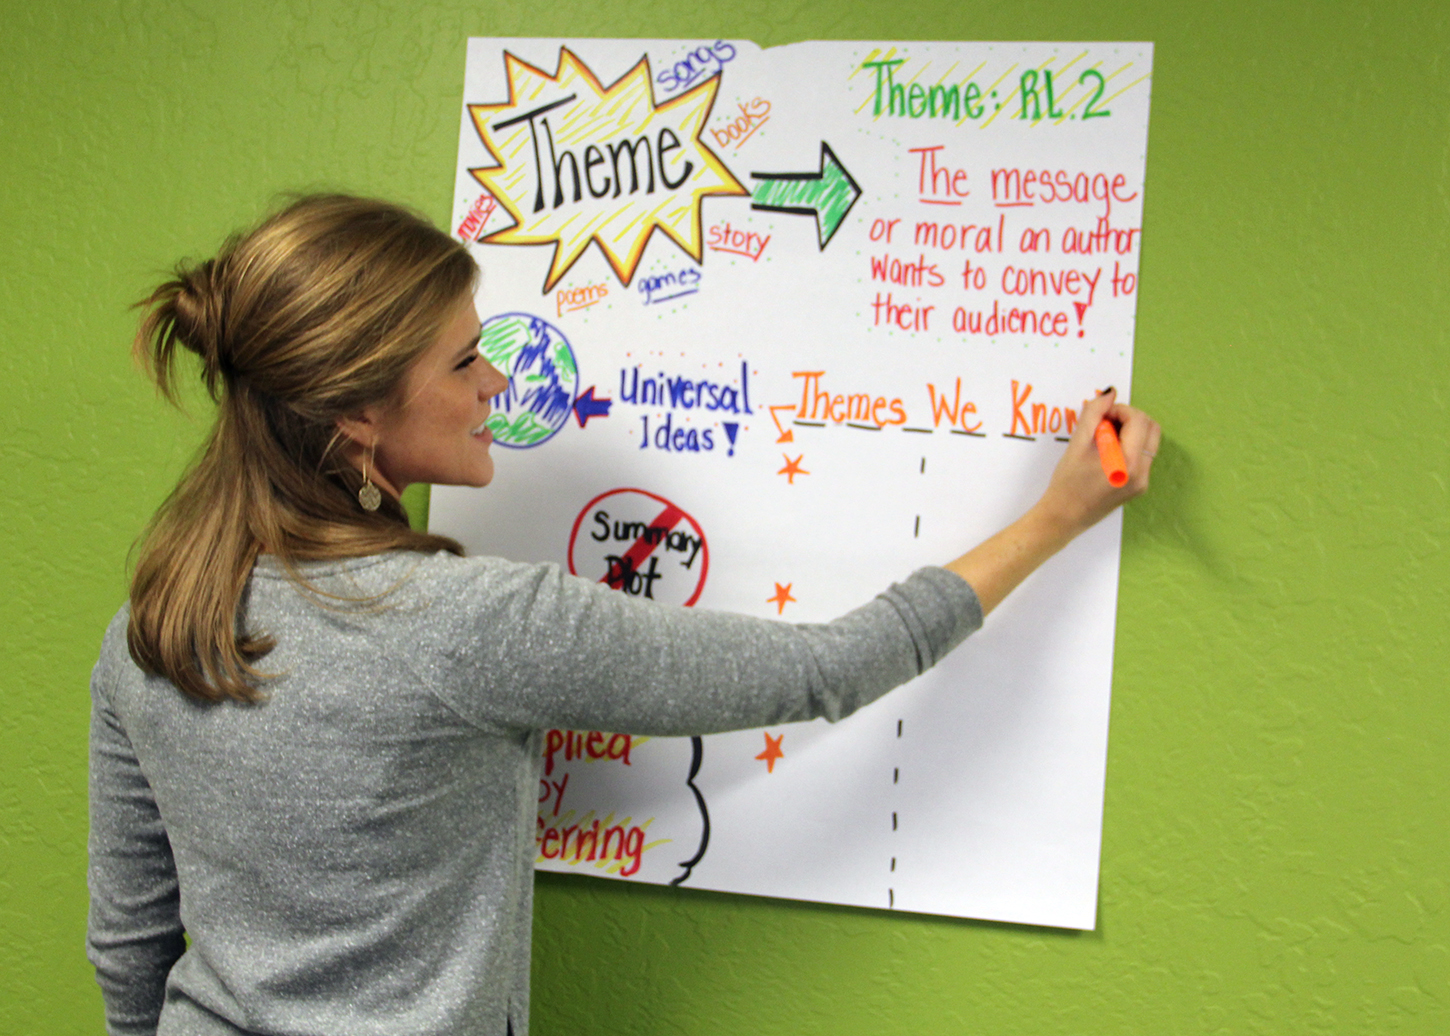 songs
Theme
books
movies
story
games
poems
Theme: RL.2
The message
or moral an author
wants to convey to
their audience!
Universal
Ideas!
Themes We Know
Summary
Plot
plied
by
ferring